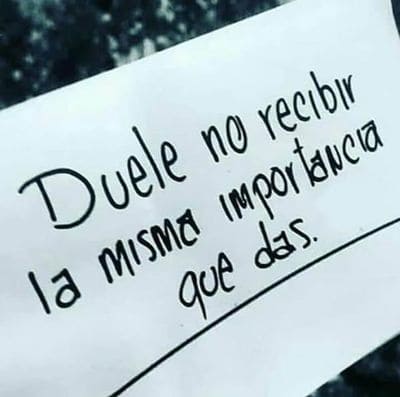 Duele no recibir
la misma importancia
que das.